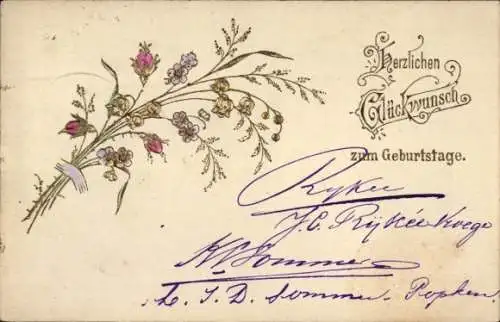 Herzlichen
Glückwunsch
zum Geburtstage.
Rykee
J.C. Rÿkée
Sommer
S. D. Sommer. Popken